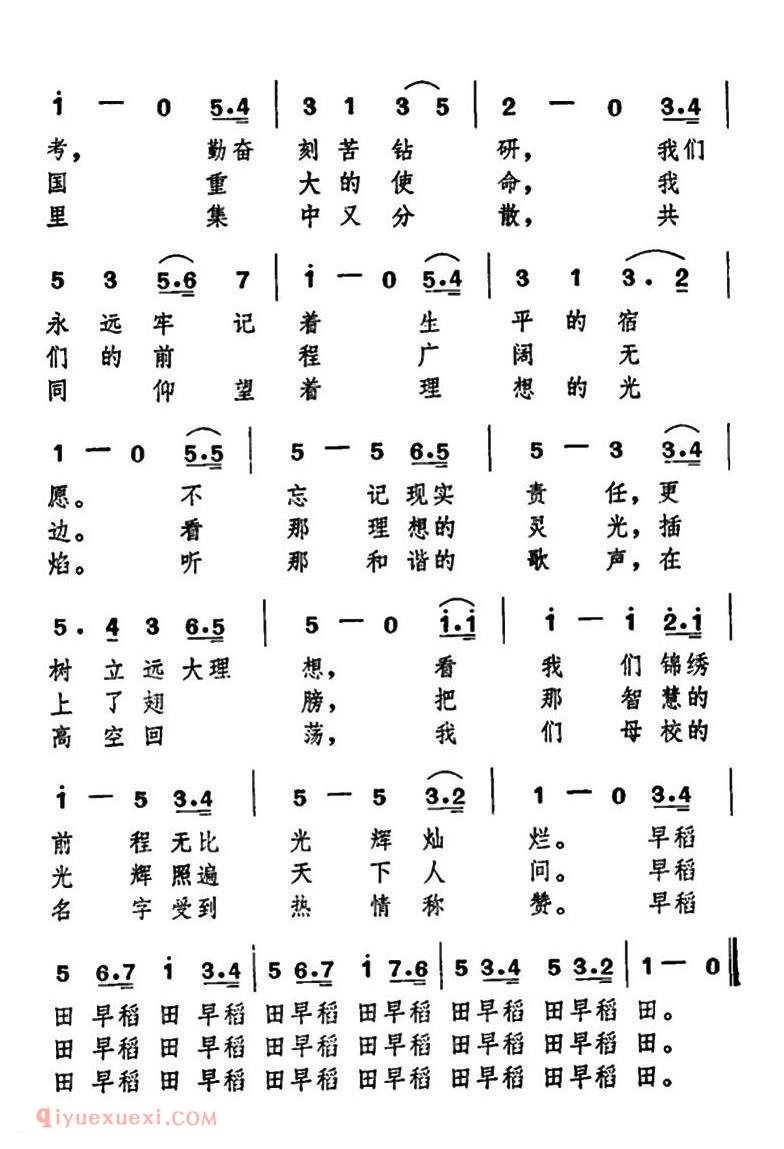 i — 0 5.4 | 3 1 3 5 | 2 — 0 3.4 |
考， 勤奋 刻苦钻 研， 我们
国 重 大的使 命， 我
里 集 中又分 散， 共
5 3 5.6 7 | i — 0 5.4 | 3 1 3. 2 |
永远牢记 着 生 平的宿
们的前 程 广 阔无
同仰望 着 理 想的光
1 — 0 5.5 | 5 — 5 6.5 | 5 — 3 3.4 |
愿。 不 忘 记现实 责 任，更
边。 看 那 理想的 灵 光，插
焰。 听 那 和谐的 歌 声，在
5. 4 3 6.5 | 5 — 0 i.i | i — i 2.i |
树立远大理 想， 看 我 们锦绣
上了翅 膀， 把 那 智慧的
高空回 荡， 我 们 母校的
i — 5 3.4 | 5 — 5 3.2 | 1 — 0 3.4 |
前 程无比 光 辉灿 烂。 早稻
光 辉照遍 天 下人 间。 早稻
名 字受到 热 情称 赞。 早稻
5 6.7 i 3.4 | 5 6.7 i 7.6 | 5 3.4 5 3.2 | 1 — 0 ‖
田早稻田早稻田早稻田早稻田早稻田早稻田。
田早稻田早稻田早稻田早稻田早稻田早稻田。
田早稻田早稻田早稻田早稻田早稻田早稻田。
qiyuexuexi.COM